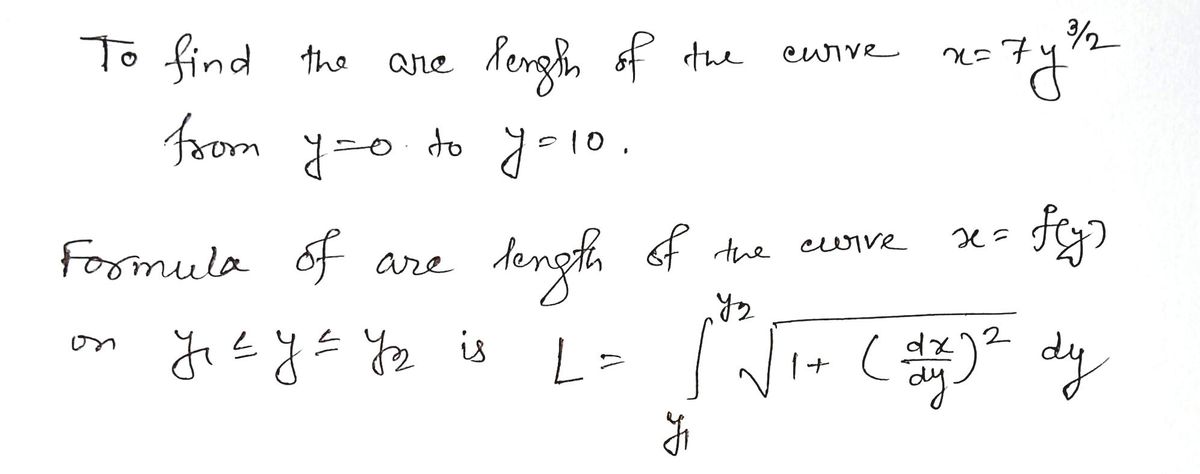 To find the arc length of the curve x = 7y^{3/2}
from y=0 to y=10.
Formula of arc length of the curve x = f(y)
on y₁ ≤ y ≤ y₂ is L = ∫_{y₁}^{y₂} √(1 + (dx/dy)²) dy